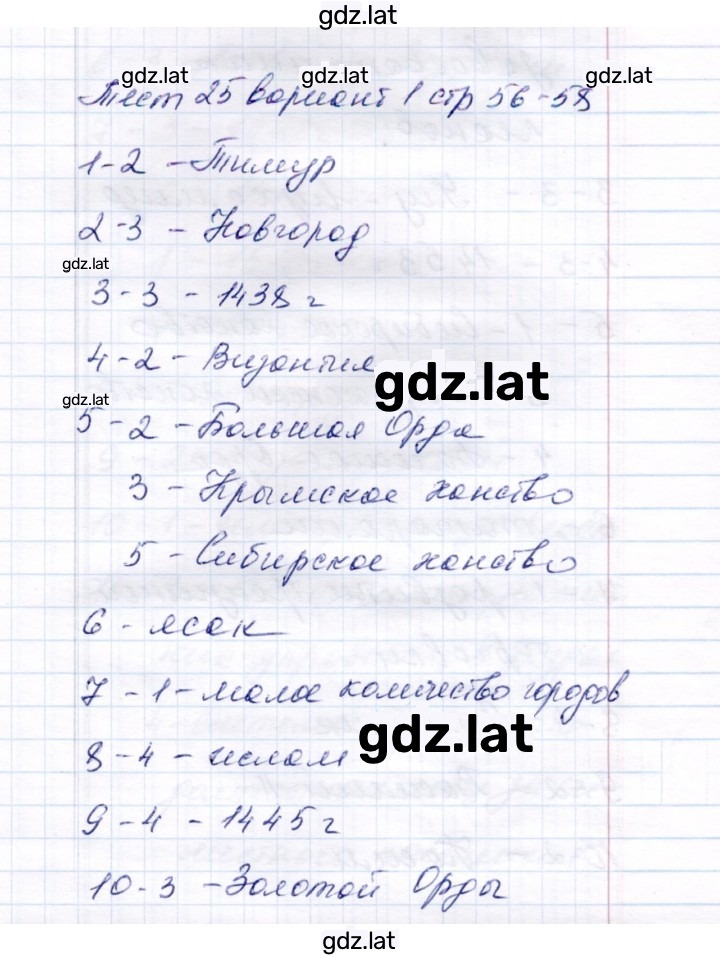 gdz.lat
gdz.lat gdz.lat gdz.lat
Тест 25 вариант 1 стр 56-58
1-2 - Тимур
2-3 - Новгород
gdz.lat
3-3 - 1438 г
4-2 - Византия
gdz.lat
gdz.lat
5-2 - Большая Орда
3 - Крымское ханство
5 - Сибирское ханство
6 - ясак
7 - 1 - малое количество городов
gdz.lat
8-4 - ислам
9-4 - 1445 г
10-3 - Золотой Орды
gdz.lat